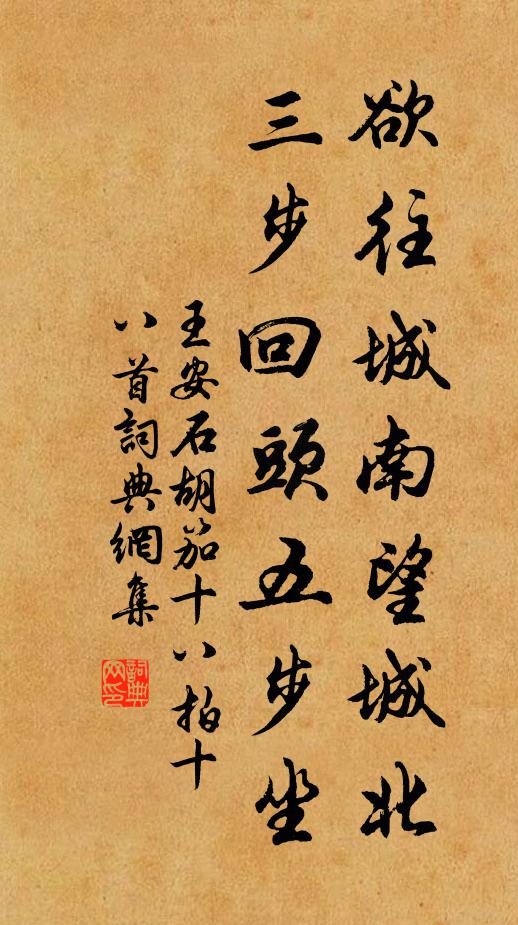 欲往城南望城北
三步回頭五步坐
王安石胡笳十八拍十
八首詞典網集
詞典
网印